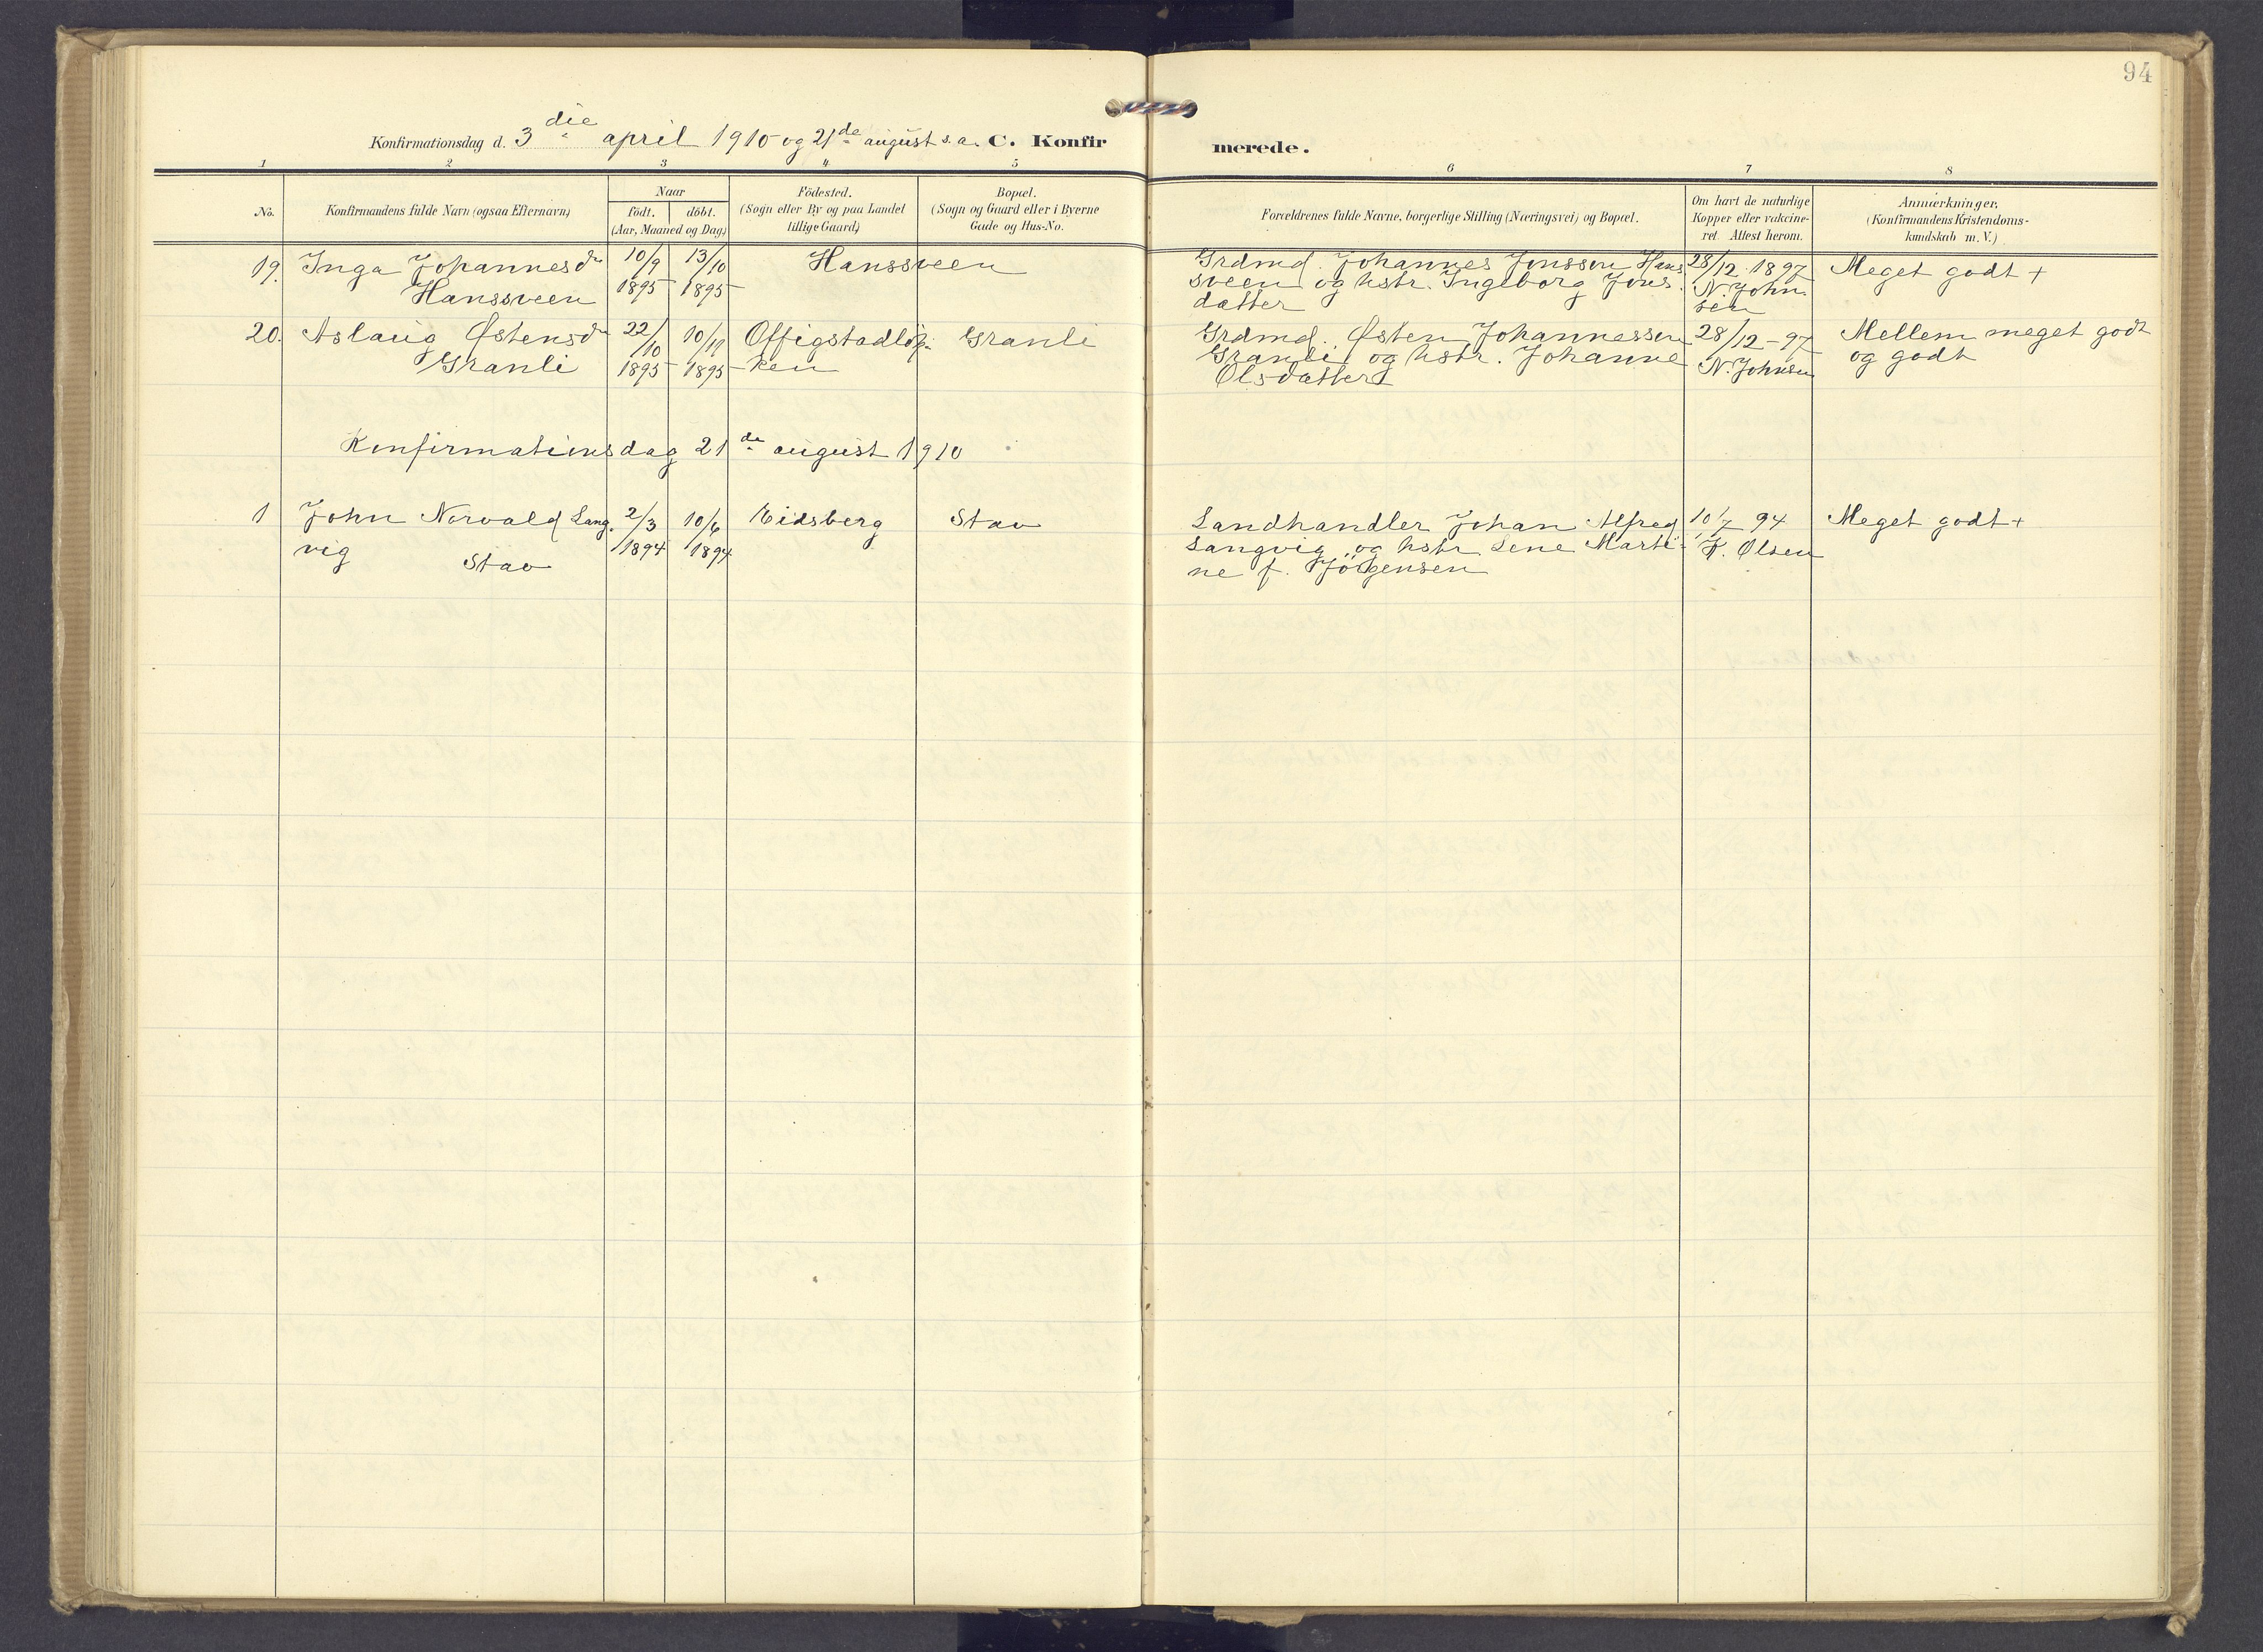 94
Konfirmationsdag d. 3die april 1910 og 21de august s.a. C. Konfirmerede.
1 2 3 4 5 6 7 8
No.
Konfirmandens fulde Navn (ogsaa Efternavn)
Naar
födt. döbt.
(Aar, Maaned og Dag)
Födested.
(Sogn eller By og paa Landet
tillige Gaard)
Bopæl.
(Sogn og Gaard eller i Byerne
Gade og Hus-No.
Forældrenes fulde Navne, borgerlige Stilling (Næringsvei) og Bopæl.
Om havt de naturlige
Kopper eller vakcine-
ret. Attest herom.
Anmærkninger,
(Konfirmandens Kristendoms-
kundskab m. V.)
19. Inga Johannesdr 10/9 13/10 Hanssveen Grdmd. Johannes Jonssen Hans 28/12 1897 Meget godt +
Hanssveen 1895 1895 sveen og hstr. Ingeborg Jons N. John
datter sen
20. Aslaug Østensdr 22/10 10/11 Offigstadløk- Granli Grdmd. Østen Johannessen 28/12 - 97 Mellem meget godt
Granli 1895 1895 ken Granli og hstr. Johanne N. Johnsen og godt
Olsdatter
Konfirmationsdag 21de august 1910
1 John Norvald Lang- 2/3 10/6 Eidsberg Stav Landhandler Johan Alfred 10/7 94 Meget godt +
vig Stav 1894 1894 Langvig og hstr Lene Marti- K. Olsen
ne f. Jörgensen